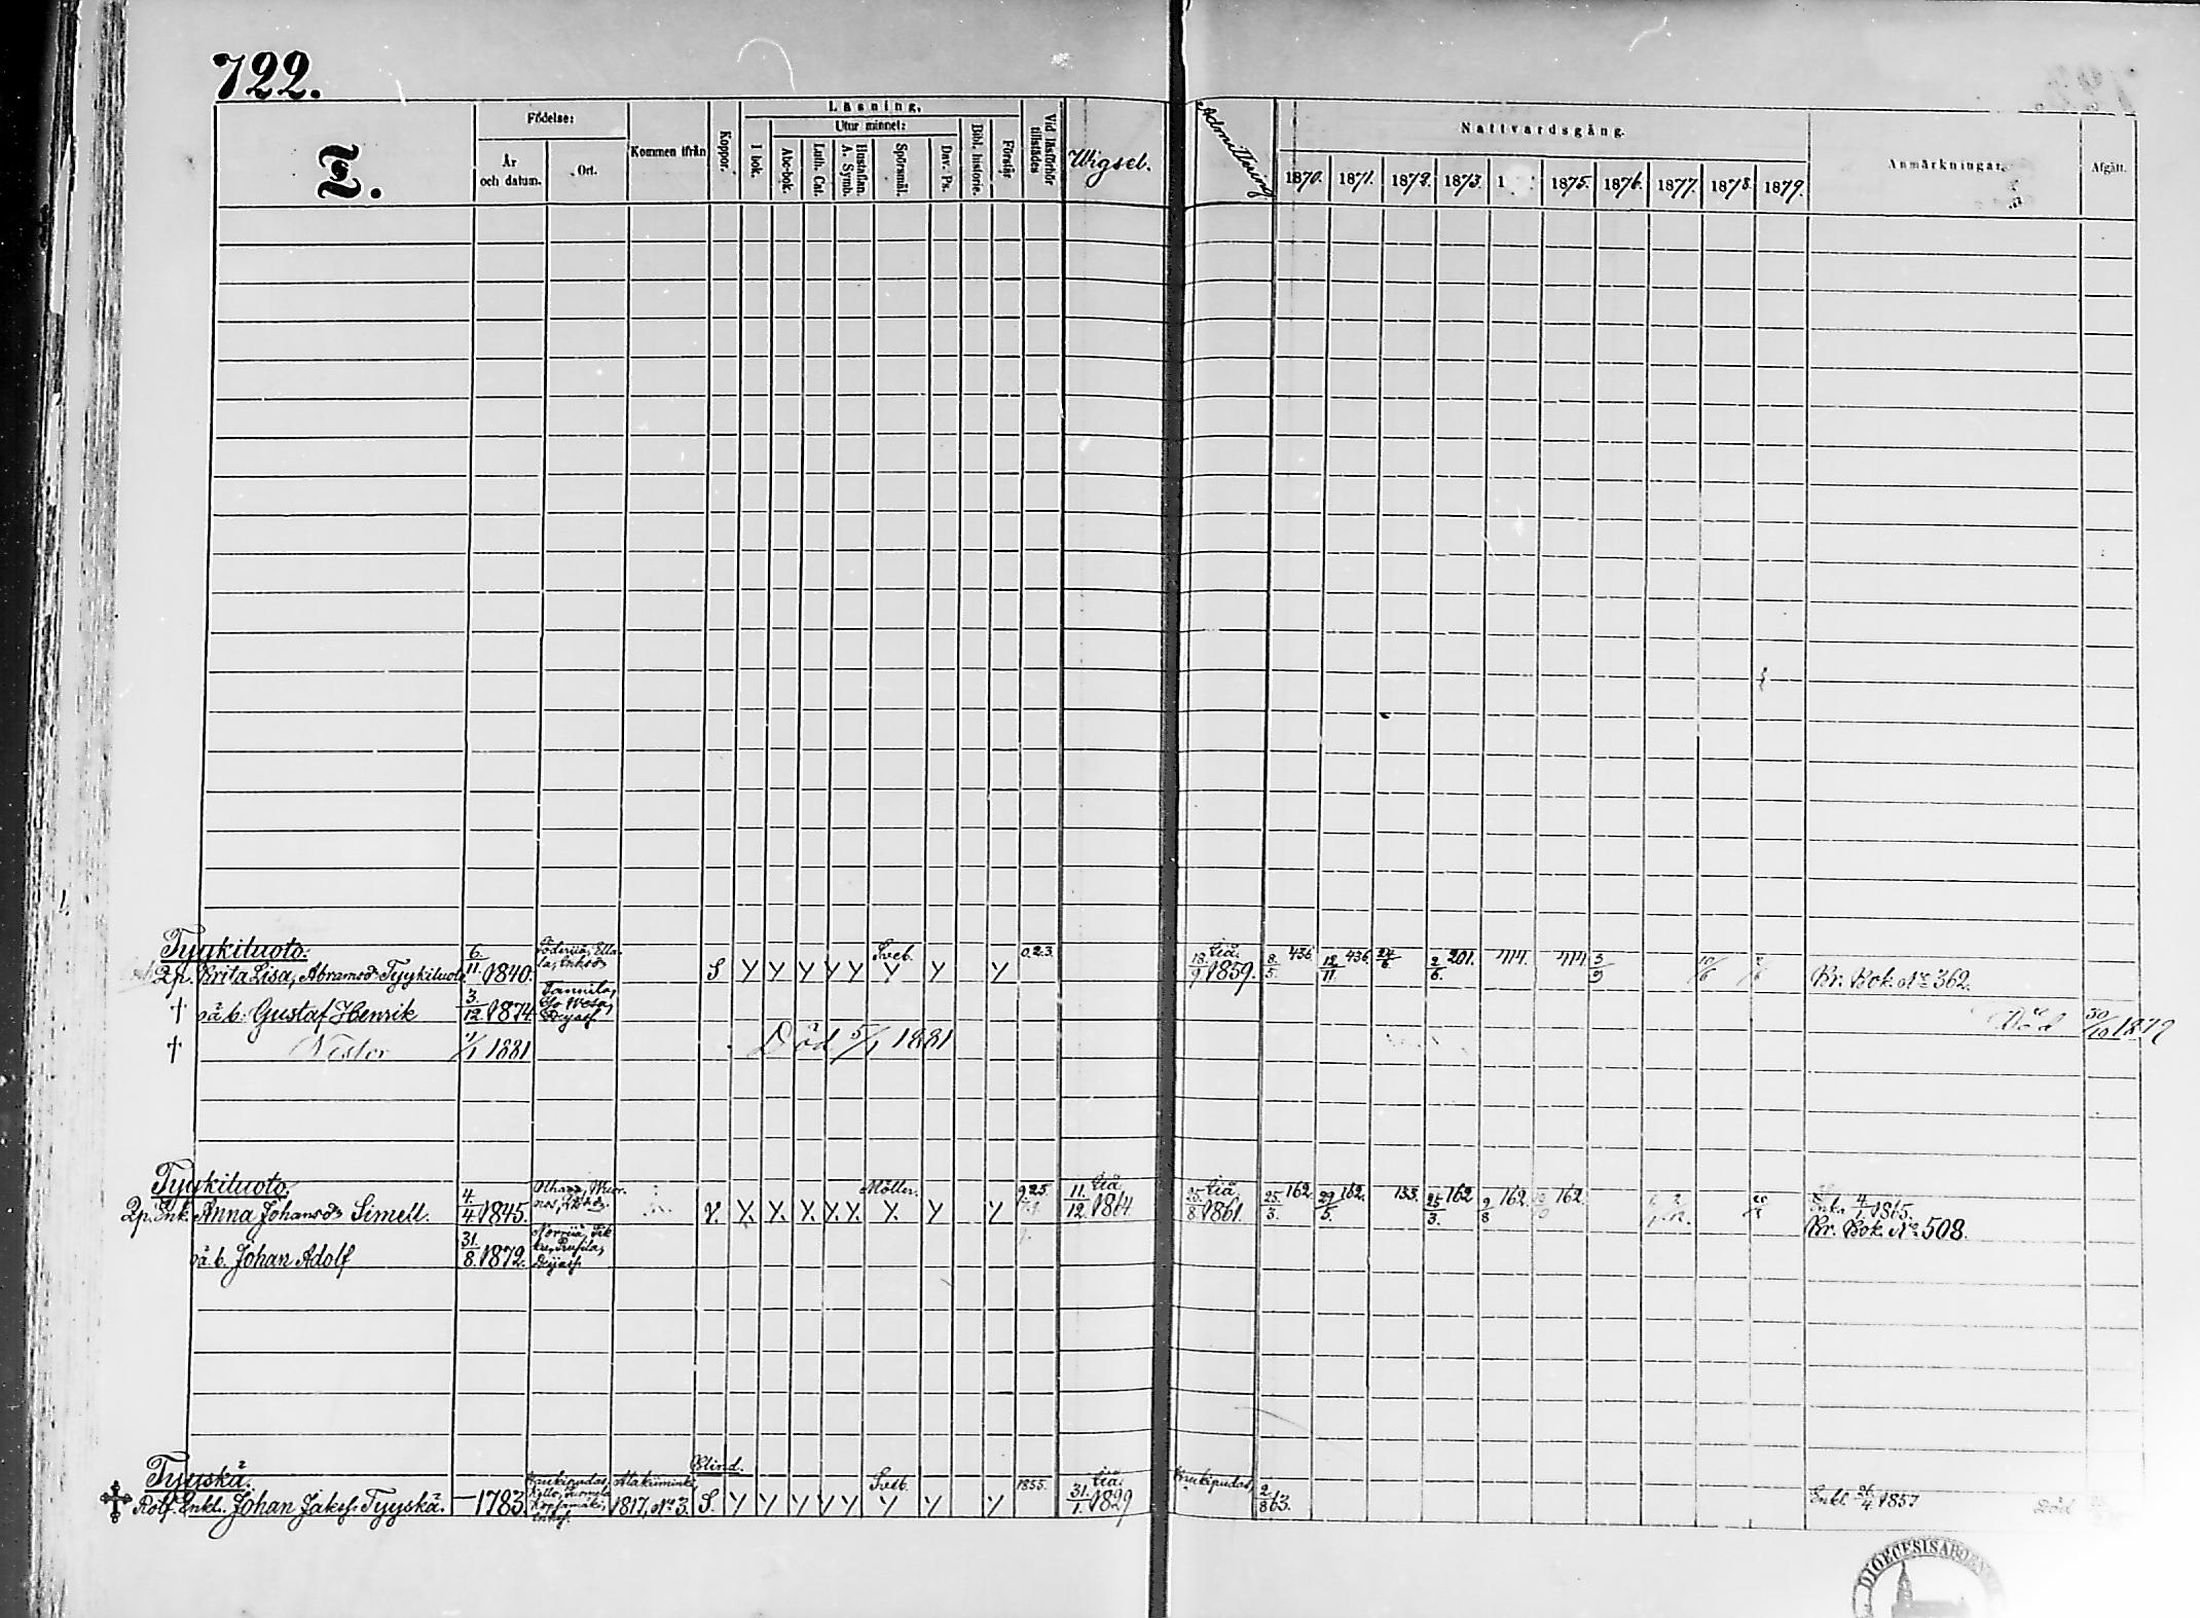 722.
T.
Födelse:
År och datum.
Ort.
Kommen ifrån
Koppor.
Läsning.
I bok.
Utur minnet:
Abc-bok.
Luth. Cat.
Hustaflan. A. Symb.
Spörsmål.
Dav. Ps.
Bibl. historie.
Förstår
Vid läsförhör tillstädes
Wigsel.
Admittering
Nattvardsgång.
1870. 1871. 1872. 1873. 1 1875. 1876. 1877. 1878. 1879.
Anmärkningar.
Afgått.
Tyykiluoto.
2p. Brita Lisa, Abramsdr Tyykiluoto 6/11 1840. S Y Y Y Y Y Sveb. Y Y Y 0.2.3. 18/9 1859. 8/5. 436. 12/11. 436. 24/6. 2/6. 201. 414. 414 3/9 10/6 Br. Bok. No 362.
† oä b. Gustaf Henrik 3/12 1874. Död 30/10 1879
† Nestor 1/1 1881 Död 5/1 1881
Tyykiluoto.
2p. Enk. Anna Johansdr Simell. 4/4 1845. Y. Y. Y. Y. Y. Y. Möller. Y. Y Y 9.25. 11/12. 1864 25/8 1861. 25/3. 162. 29/5. 162. 133. 25/3. 162 9/8 162. 162. Enka 4/1. 1865.
Br. Bok. No 508.
oä. b. Johan Adolf 31/8. 1872.
Tyyskä.
Rotf. Enkl. Johan Jakofs. Tyyskä. 1783. Haukipudas, Kello, 1817, No 3. Blind. S. Y Y Y Y Y Sveb. Y Y Y 1855. 31/1. 1829 Haukipudas, 2/8 63. Enkl. 26/4. 1857 Död
DIOECESIS ABOEN